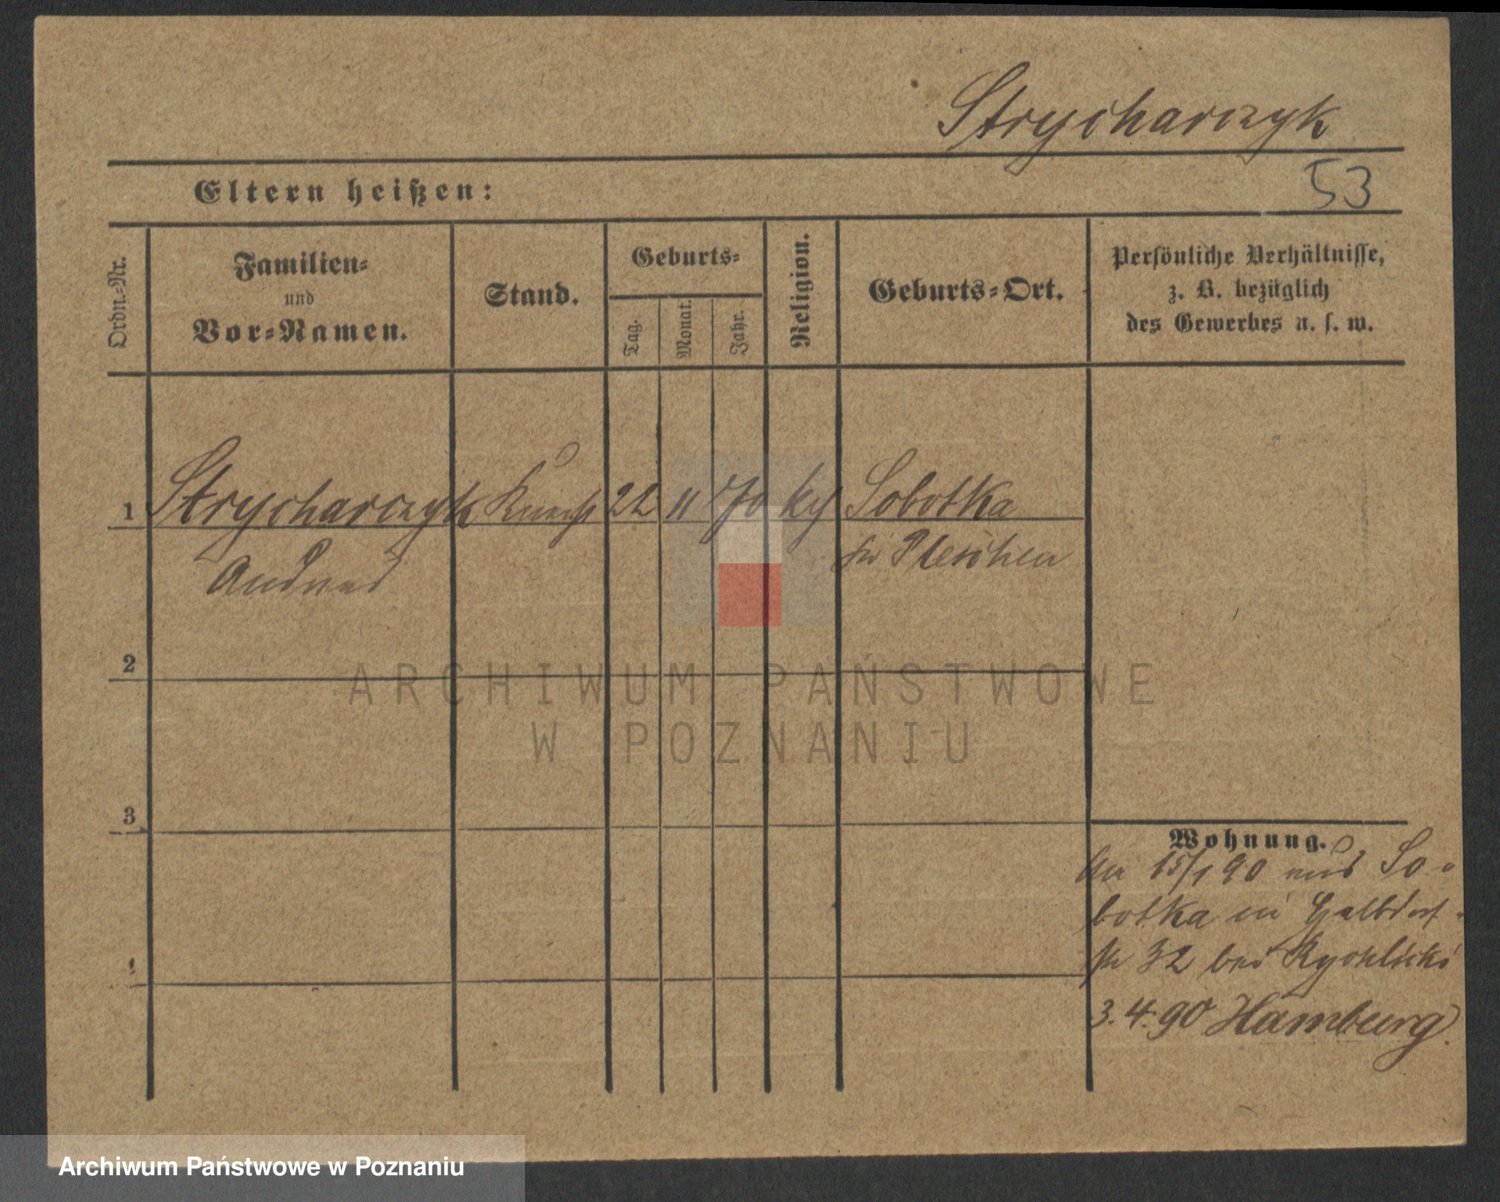 Strycharczyk
Eltern heißen:
53
Ordn.-Nr.
Familien-
und
Vor-Namen.
Stand.
Geburts-
Tag.
Monat.
Jahr.
Religion.
Geburts-Ort.
Persönliche Verhältnisse,
z. B. bezüglich
des Gewerbes u. s. w.
1 Strycharczyk 22 11 70 Sobotka
Andreas
Pleschen
2
3
4
Wohnung.
15/1 90 aus So-
botka in Halbdorf-
32 bei Rychlicki
3.4.90 Hamburg.
ARCHIWUM PAŃSTWOWE
W POZNANIU
Archiwum Państwowe w Poznaniu